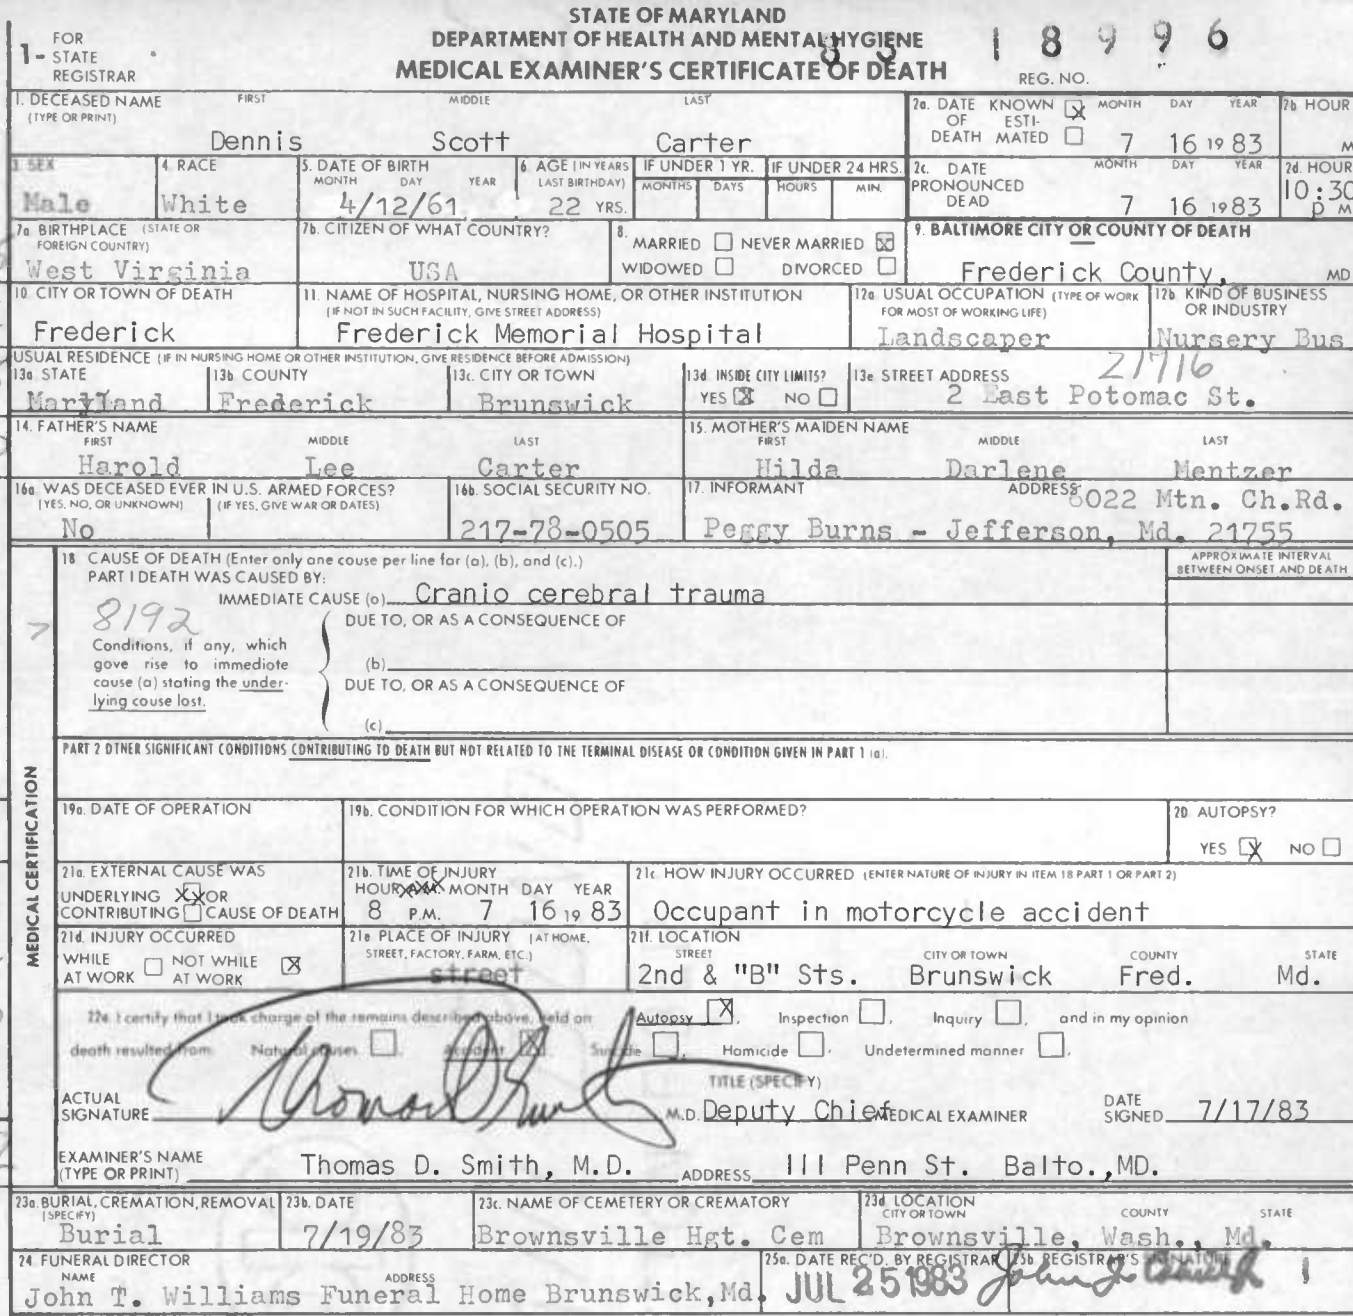 STATE OF MARYLAND
DEPARTMENT OF HEALTH AND MENTAL HYGIENE
MEDICAL EXAMINER'S CERTIFICATE OF DEATH
1- FOR STATE REGISTRAR
83 18996
REG. NO.
1. DECEASED NAME (TYPE OR PRINT) FIRST MIDDLE LAST
Dennis Scott Carter
2a. DATE OF DEATH KNOWN [X] ESTI-MATED [ ] MONTH DAY YEAR
7 16 19 83
2b HOUR M
3. SEX
Male
4. RACE
White
5. DATE OF BIRTH MONTH DAY YEAR
4/12/61
6. AGE (IN YEARS LAST BIRTHDAY)
22 YRS.
IF UNDER 1 YR. MONTHS DAYS
IF UNDER 24 HRS. HOURS MIN.
2c. DATE PRONOUNCED DEAD MONTH DAY YEAR
7 16 1983
2d. HOUR
10:30 P M
7a BIRTHPLACE (STATE OR FOREIGN COUNTRY)
West Virginia
7b. CITIZEN OF WHAT COUNTRY?
USA
8. MARRIED [ ] NEVER MARRIED [X]
WIDOWED [ ] DIVORCED [ ]
9. BALTIMORE CITY OR COUNTY OF DEATH
Frederick County, MD
10. CITY OR TOWN OF DEATH
Frederick
11. NAME OF HOSPITAL, NURSING HOME, OR OTHER INSTITUTION
(IF NOT IN SUCH FACILITY, GIVE STREET ADDRESS)
Frederick Memorial Hospital
12a USUAL OCCUPATION (TYPE OF WORK FOR MOST OF WORKING LIFE)
Landscaper
12b KIND OF BUSINESS OR INDUSTRY
Nursery Bus
USUAL RESIDENCE (IF IN NURSING HOME OR OTHER INSTITUTION, GIVE RESIDENCE BEFORE ADMISSION)
13a STATE
Maryland
13b COUNTY
Frederick
13c. CITY OR TOWN
Brunswick
13d. INSIDE CITY LIMITS?
YES [X] NO [ ]
13e STREET ADDRESS
21716
2 East Potomac St.
14. FATHER'S NAME FIRST MIDDLE LAST
Harold Lee Carter
15. MOTHER'S MAIDEN NAME FIRST MIDDLE LAST
Hilda Darlene Mentzer
16a WAS DECEASED EVER IN U.S. ARMED FORCES?
(YES, NO, OR UNKNOWN) (IF YES, GIVE WAR OR DATES)
No
16b. SOCIAL SECURITY NO.
217-78-0505
17. INFORMANT ADDRESS
022 Mtn. Ch.Rd.
Peggy Burns - Jefferson, Md. 21755
MEDICAL CERTIFICATION
18 CAUSE OF DEATH (Enter only one cause per line for (a), (b), and (c).)
PART I DEATH WAS CAUSED BY:
APPROXIMATE INTERVAL BETWEEN ONSET AND DEATH
IMMEDIATE CAUSE (a) Cranio cerebral trauma
8192
DUE TO, OR AS A CONSEQUENCE OF
Conditions, if any, which gave rise to immediate cause (a) stating the under-lying cause last.
(b)
DUE TO, OR AS A CONSEQUENCE OF
(c)
PART 2 OTHER SIGNIFICANT CONDITIONS CONTRIBUTING TO DEATH BUT NOT RELATED TO THE TERMINAL DISEASE OR CONDITION GIVEN IN PART 1 (a).
19a. DATE OF OPERATION
19b. CONDITION FOR WHICH OPERATION WAS PERFORMED?
20 AUTOPSY?
YES [X] NO [ ]
21a. EXTERNAL CAUSE WAS
UNDERLYING [X] OR
CONTRIBUTING [ ] CAUSE OF DEATH
21b. TIME OF INJURY
HOUR A.M. MONTH DAY YEAR
8 P.M. 7 16 19 83
21c HOW INJURY OCCURRED (ENTER NATURE OF INJURY IN ITEM 18 PART 1 OR PART 2)
Occupant in motorcycle accident
21d. INJURY OCCURRED
WHILE AT WORK [ ] NOT WHILE AT WORK [X]
21e PLACE OF INJURY (AT HOME, STREET, FACTORY, FARM, ETC.)
street
21f. LOCATION
STREET CITY OR TOWN COUNTY STATE
2nd & "B" Sts. Brunswick Fred. Md.
22a I certify that I took charge of the remains described above, held an Autopsy [X], Inspection [ ], Inquiry [ ], and in my opinion
death resulted from Natural causes [ ], Accident [X], Suicide [ ], Homicide [ ], Undetermined manner [ ],
ACTUAL SIGNATURE Thomas D Smith M.D.
TITLE (SPECIFY)
Deputy Chief MEDICAL EXAMINER
DATE SIGNED 7/17/83
EXAMINER'S NAME (TYPE OR PRINT) Thomas D. Smith, M.D.
ADDRESS 111 Penn St. Balto.,MD.
23a. BURIAL, CREMATION, REMOVAL (SPECIFY)
Burial
23b. DATE
7/19/83
23c. NAME OF CEMETERY OR CREMATORY
Brownsville Hgt. Cem
23d LOCATION CITY OR TOWN COUNTY STATE
Brownsville, Wash., Md.
24 FUNERAL DIRECTOR
NAME ADDRESS
John T. Williams Funeral Home Brunswick,Md.
25a. DATE REC'D. BY REGISTRAR
JUL 25 1983
25b REGISTRAR'S SIGNATURE
John J.